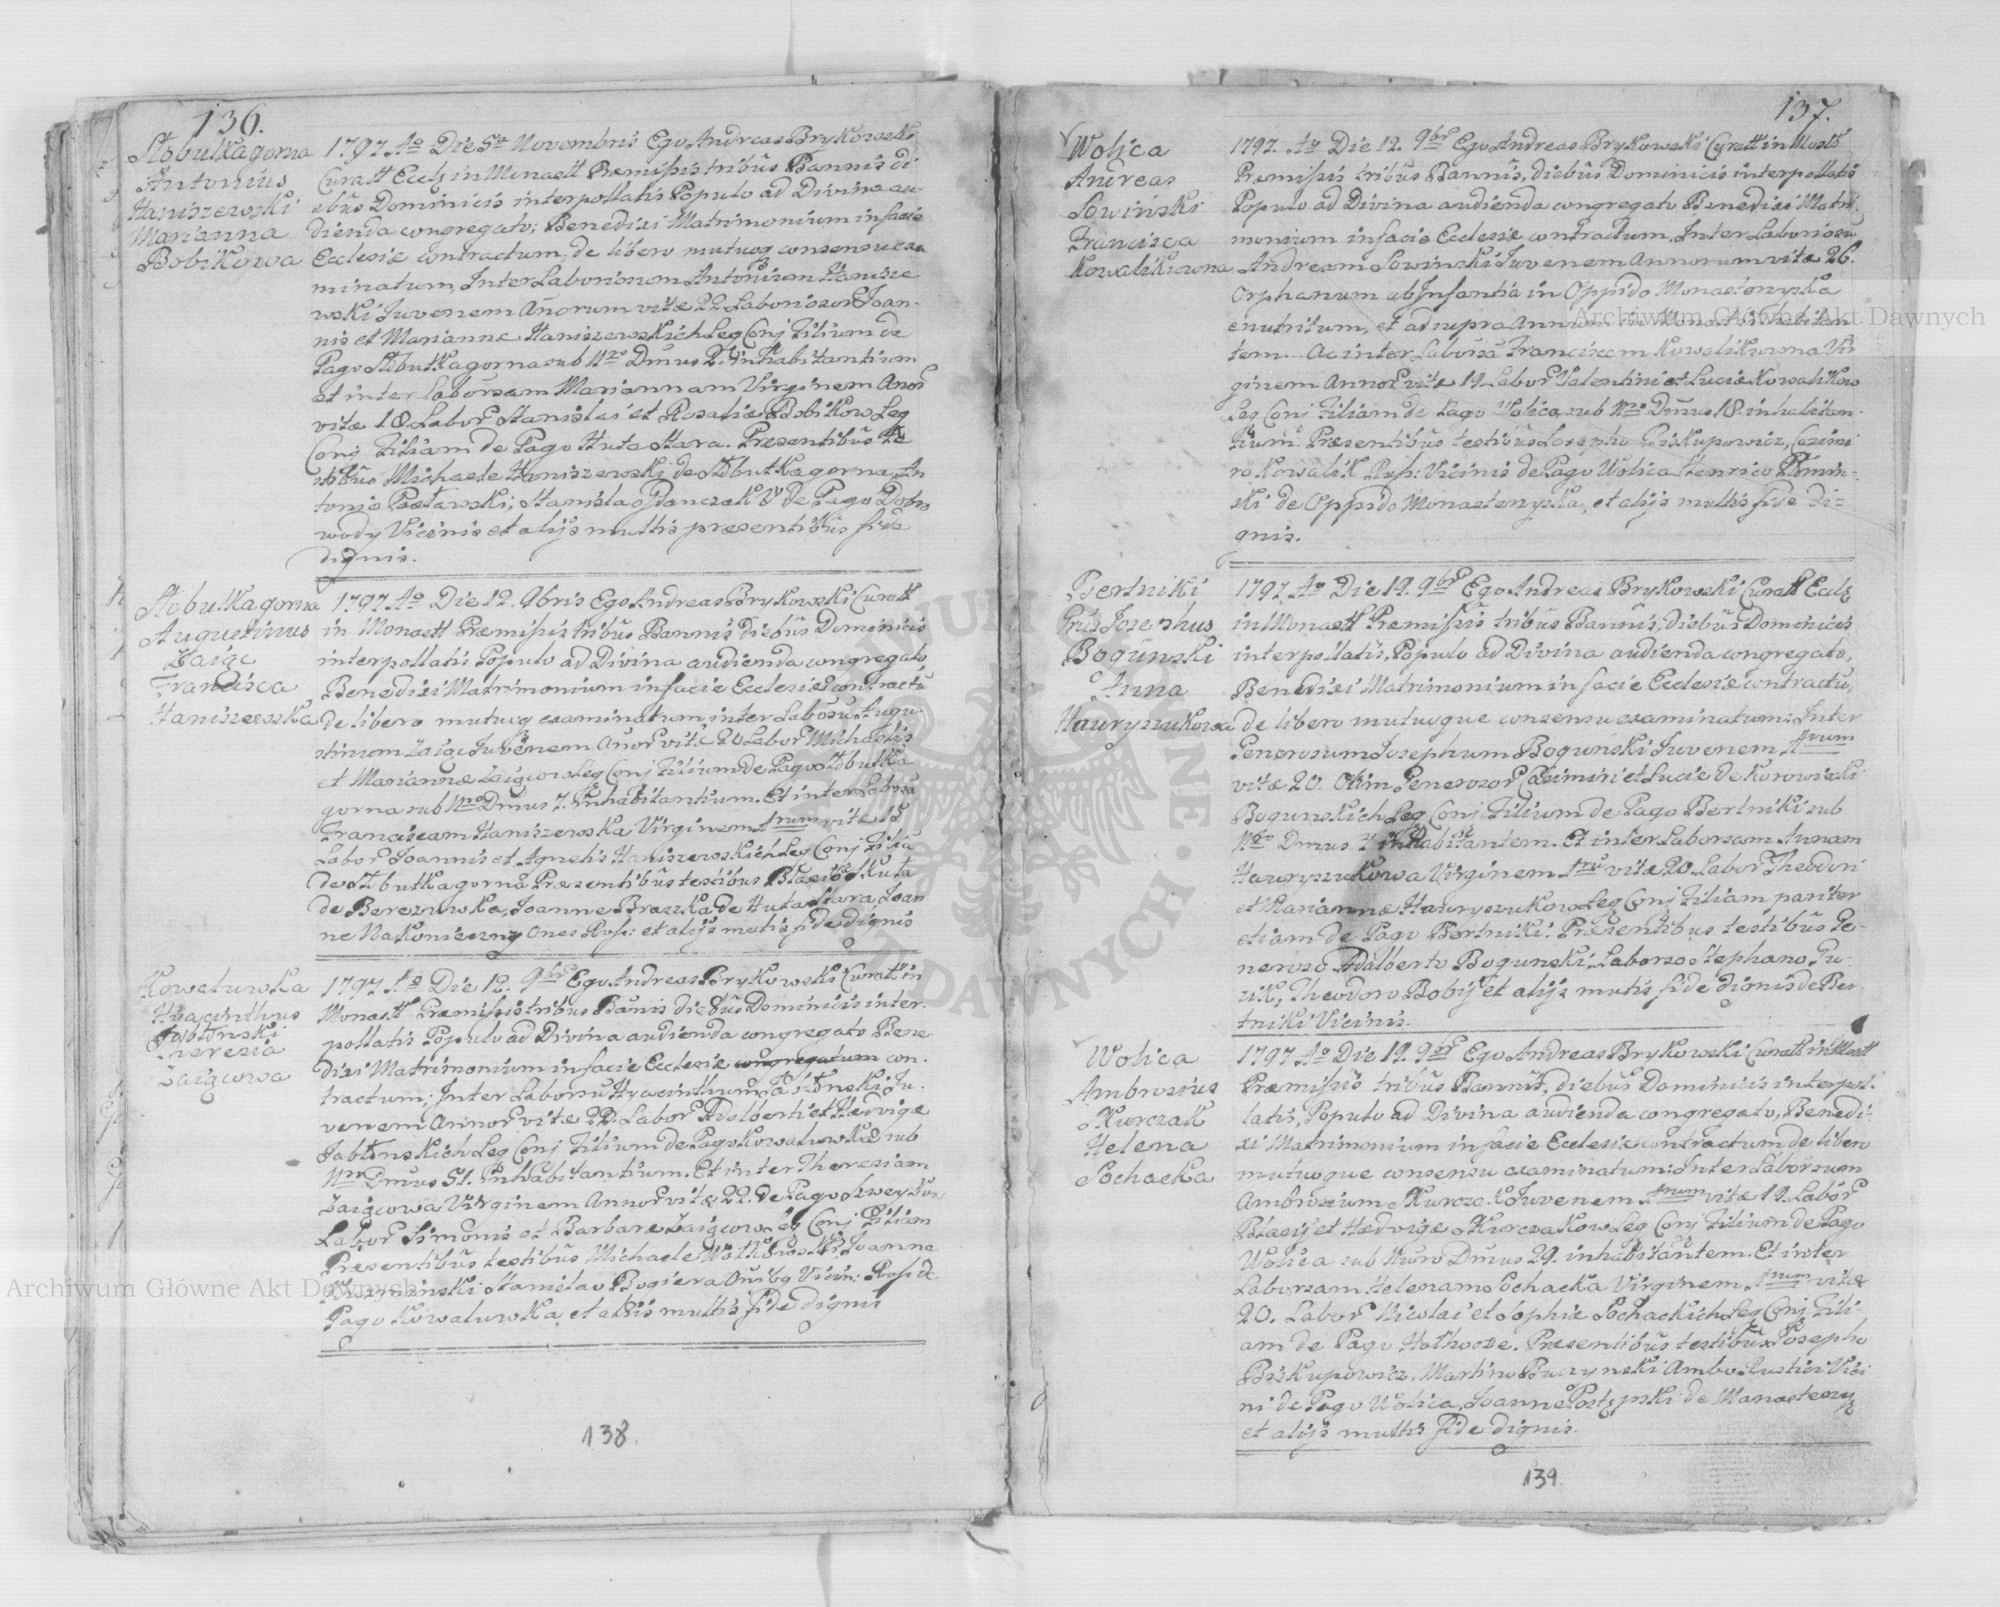 136.
Słobutka gorna
Antonius
Haniszewski
Marianna
Bobikowa
1797 Aº Die 5ta Novembris Ego Andreas Brykowski
Curatt Eccls in Monastt Præmissis tribûs Bannis di
ebûs Dominicis interpollatis Populo ad Divina au-
dienda congregato; Benedixi Matrimonium in facie
Ecclesiæ contractum, de libero mutuoq consensu exa
minatum, Inter Laboriosum Antonium Hanisze
wski Juvenem Añorum vitæ 22 Laboriosor Joan-
nis et Marianne Haniszewskich Leg Conj Filium de
Pago Słobutka gorna sub Nro Dmus 2. inhabitantium
et inter Laborsam Mariannam Virginem Anor
vitæ 18. Labor Stanislai et Rosaliæ Bobikow Leg
Conj Filiam de Pago Huta Stara. Præsentibûs te
stibûs Michaele Haniszewski de Słobutka gorna, An
tonio Pastawski; Stanislao Danczak de Pago Dobro
wody Vicinis et alijs multis præsentibûs fide
dignis.
Słobutka gorna
Augustinus
Zaiąc
Francisca
Haniszewska
1797 Aº Die 12. 9bris Ego Andreas Brykowski Curatt
in Monastt Præmissis tribûs Bannis Diebûs Dominicis
interpollatis Populo ad Divina audienda congregato
Benedixi Matrimonium in facie Ecclesiæ contractû
de libero mutuoq examinatum, inter Laborsû Augu-
stinum Zaiąc Juvenem Anor vitæ 20 Labor Michaelis
et Mariannæ Zaiącow Leg Conj Filium de Pago Słobutka
gorna sub Nro Dmus 7. Inhabitantium. Et inter Laborsã
Franciscam Haniszewska Virginem Arum vitæ 18
Labor Joannis et Agnetis Haniszewskich Leg Conj Filiã
de Słobutka gorna Præsentibûs testibus Blasio Skuta
de Berezuwka, Joanne Braszka de Huta Stara, Joan
ne Nakonieczny Ones Rust: et alijs mutis fide dignis
Kowaluwka
Hyacinthus
Jabłonski
Theresia
Zaigcowa
1797 Aº Die 12. 9bris Ego Andreas Brykowski Curatt in
Monastt Præmissis tribus Bañis diebûs Dominicis inter-
pollatis Populo ad Divina audienda congregato Bene
dixi Matrimonium in facie Ecclesiæ congregatum con-
tractum; Inter Laborsû Hyacinthum Jabłonski Ju-
venem Annor vitæ 22. Labor Adalberti et Hedvigæ
Jabłonskich Leg Conj Filium de Pago Kowaluwka sub
Nro Dmus 51. Inhabitantium. Et inter Theresiam
Zaigcowa Virginem Annor vitæ 22. de Pago
Labor Simonis et Barbaræ Zaigcow Leg Conj Filiam
Præsentibûs testibûs Michaele Joanne
Kaminski Stanislao Bogiera Onibq Vicin: Rust de
Pago Kowaluwka, et alijs multis fide dignis
138.
137.
Wolica
Andreas
Łowiński
Francisca
Kowalikowna
1797. Aº Die 12. 9br Ego Andreas Brykowski Curatt in Mostt
Præmissis tribûs Bannis, diebûs Dominicis interpollatis
Populo ad Divina audienda congregato Benedixi Matri-
monium in facie Ecclesiæ contractum, Inter Laboriosum
Andream Łowinski Juvenem Annorum vitæ 26.
Orphanum ab Infantia in Oppido Monasteryska
enutritum, et ad supra Annum in Monast: inhabitan
tem. Ac inter Laborsã Franciscam Kowalikowna Vir
ginem Annor vitæ 19. Labor Valentini et Luciæ Kowalikow
Leg Conj Filiam de Pago Wolica, sub Nro Dmus 18. inhabitan-
tium. Præsentibûs testibûs Josepho Biskupowicz, Casimi
ro Kowalik Rust: Vicinis de Pago Wolica Henrico
ski de Oppido Monasteryska, et alijs multis fide di-
gnis.
Bertniki
Josephus
Bogunski
Anna
Hauryszukowa
1797. Aº Die 19. 9br Ego Andreas Brykowski Curatt Eccls
in Monastt Præmissis tribûs Bannis, diebûs Dominicis
interpollatis, Populo ad Divina audienda congregato,
Benedixi Matrimonium in facie Ecclesiæ contractû,
de libero mutuoque consensu examinatum: Inter
Generosum Josephum Bogunski Juvenem Arum
vitæ 20. Olim Generosor Casimiri et Lucie de Korowicki
Bogunskich Leg Conj Filium de Pago Bertniki sub
Nro Dmus 4 inhabitantem. Et inter Laborsam Annam
Hauryszukowa Virginem Aru vitæ 20. Labor Theodori
et Mariannæ Hauryszukow Leg Conj Filiam pariter
etiam de Pago Bertniki. Præsentibus testibûs Ge-
neroso Adalberto Bogunski, Laborso Stephano Gu-
zik, Theodoro Bobij et alijs mutis fide dignis de Ber-
tniki Vicinis.
Wolica
Ambrosius
Kurczak
Helena
Sochacka
1797 Aº Die 19. 9br Ego Andreas Brykowski Curatt in Mostt
Præmissis tribûs Bannis, diebûs Dominicis interpol-
latis, Populo ad Divina audienda congregato, Benedi-
xi Matrimonium in facie Ecclesiæ contractum de libero
mutuoque consensu examinatum: Inter Laborsum
Ambrosium Kurczak Juvenem Arum vitæ 19. Labor
Blasij et Hedvigæ Kurczakow Leg Conj Filium de Pago
Wolica sub Nuro Dmus 29. inhabitantem. Et inter
Laborsam Helenam Sochacka Virginem Arum vitæ
20. Labor Nicolai et Sophiæ Sochackich Leg Conj Fili-
am de Pago Hathocze. Præsentibûs testibûs Josepho
Biskupowicz, Martino Buczynski Ambo Rustici Vici
ni de Pago Wolica, Joanne Postępski de Monasterzy
et alijs multis fide dignis.
139
Archiwum Główne Akt Dawnych
Archiwum Główne Akt Dawnych